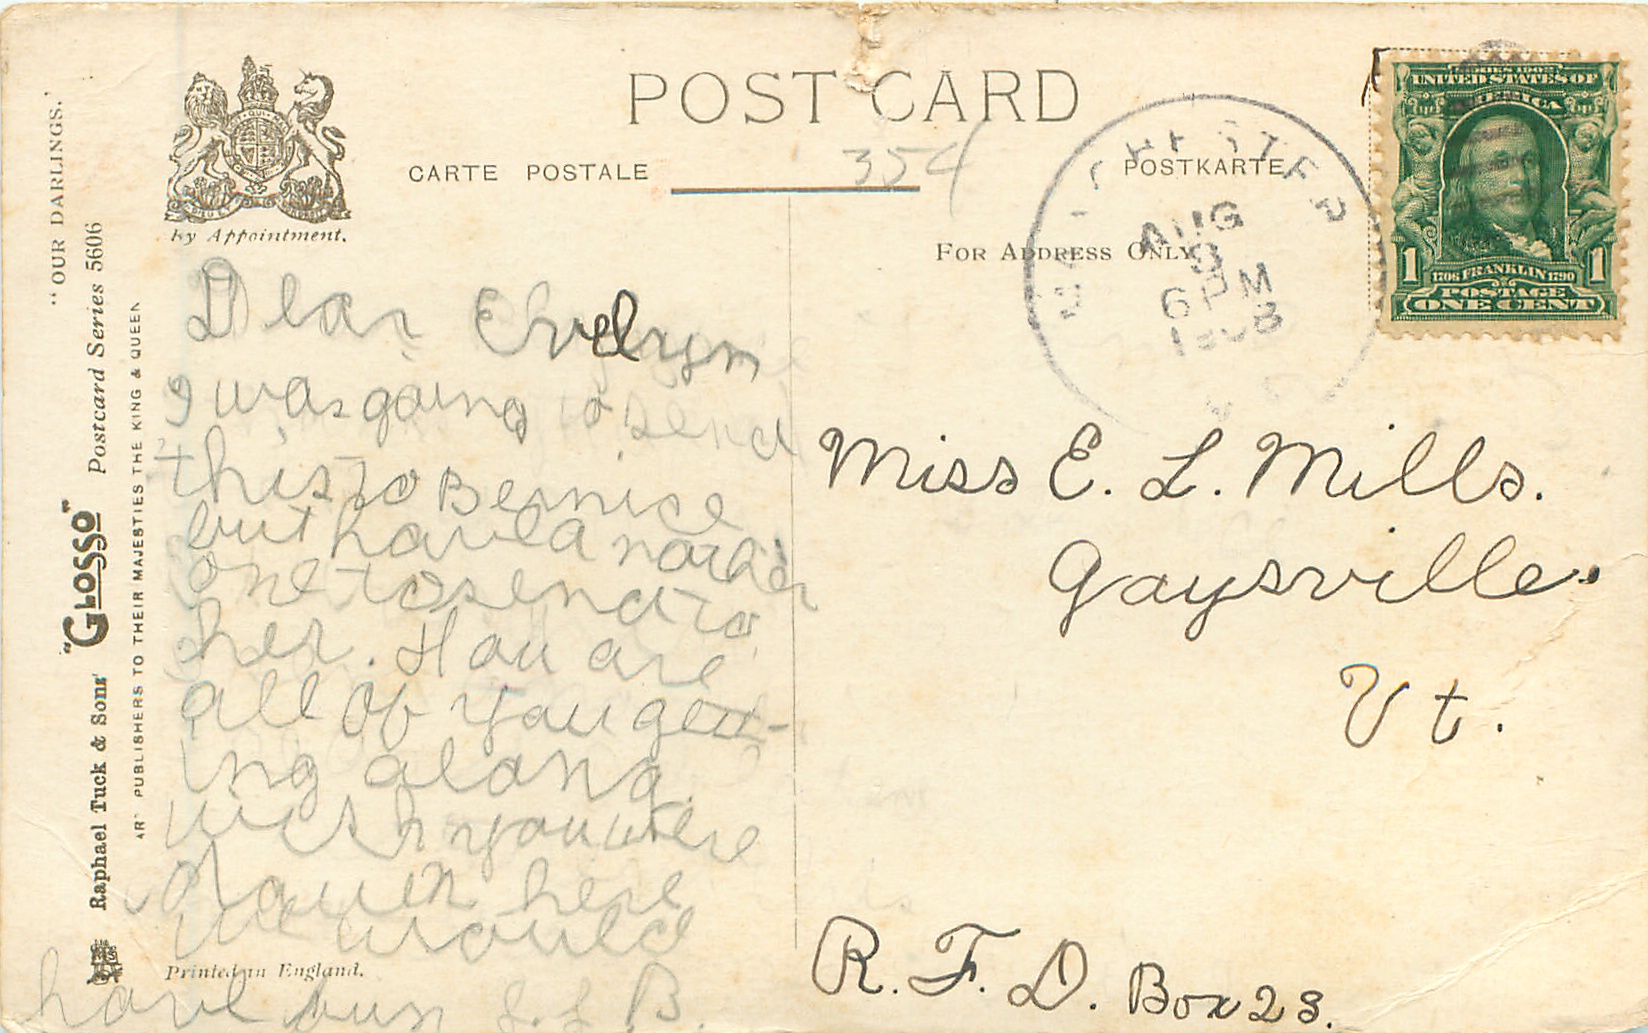 POST CARD
CARTE POSTALE
POSTKARTE
354
FOR ADDRESS ONLY
By Appointment.
"OUR DARLINGS."
Raphael Tuck & Sons' "GLOSSO" Postcard Series 5606
ART PUBLISHERS TO THEIR MAJESTIES THE KING & QUEEN
SERIES 1902
UNITED STATES OF
AMERICA
1 1706 FRANKLIN 1790 1
POSTAGE
ONE CENT
AUG
6 PM
Dear Evelyn
I was going to send
this to Bernice
but have a nother
one to send to
her. How are
all of you gett-
ing along.
wish you were
down here
we would
have fun L. L. B.
Printed in England.
Miss E. L. Mills.
Gaysville.
Vt.
R. F. D. Box 23.